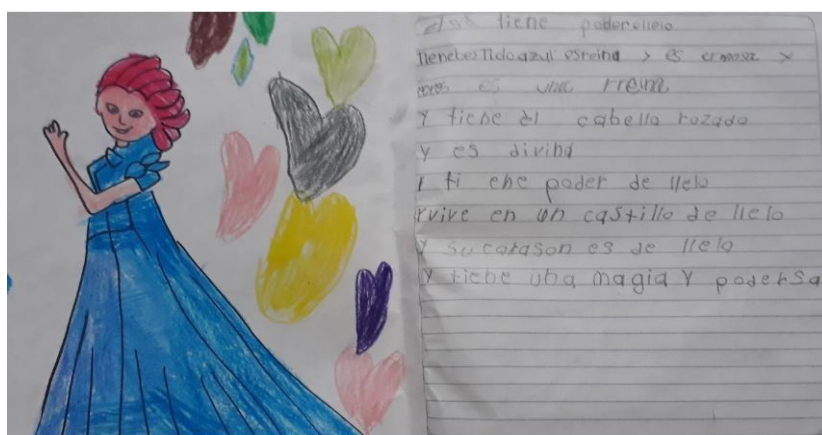 elsa tiene poder llelo
tienebestido azul esreina y es ermosa y
es una rreina
Y tiene el cabello rozado
y es divina
Y ti ene poder de llelo
Yvive en un castillo de llelo
Y su corason es de llelo
Y tiene una magia Y poderSa